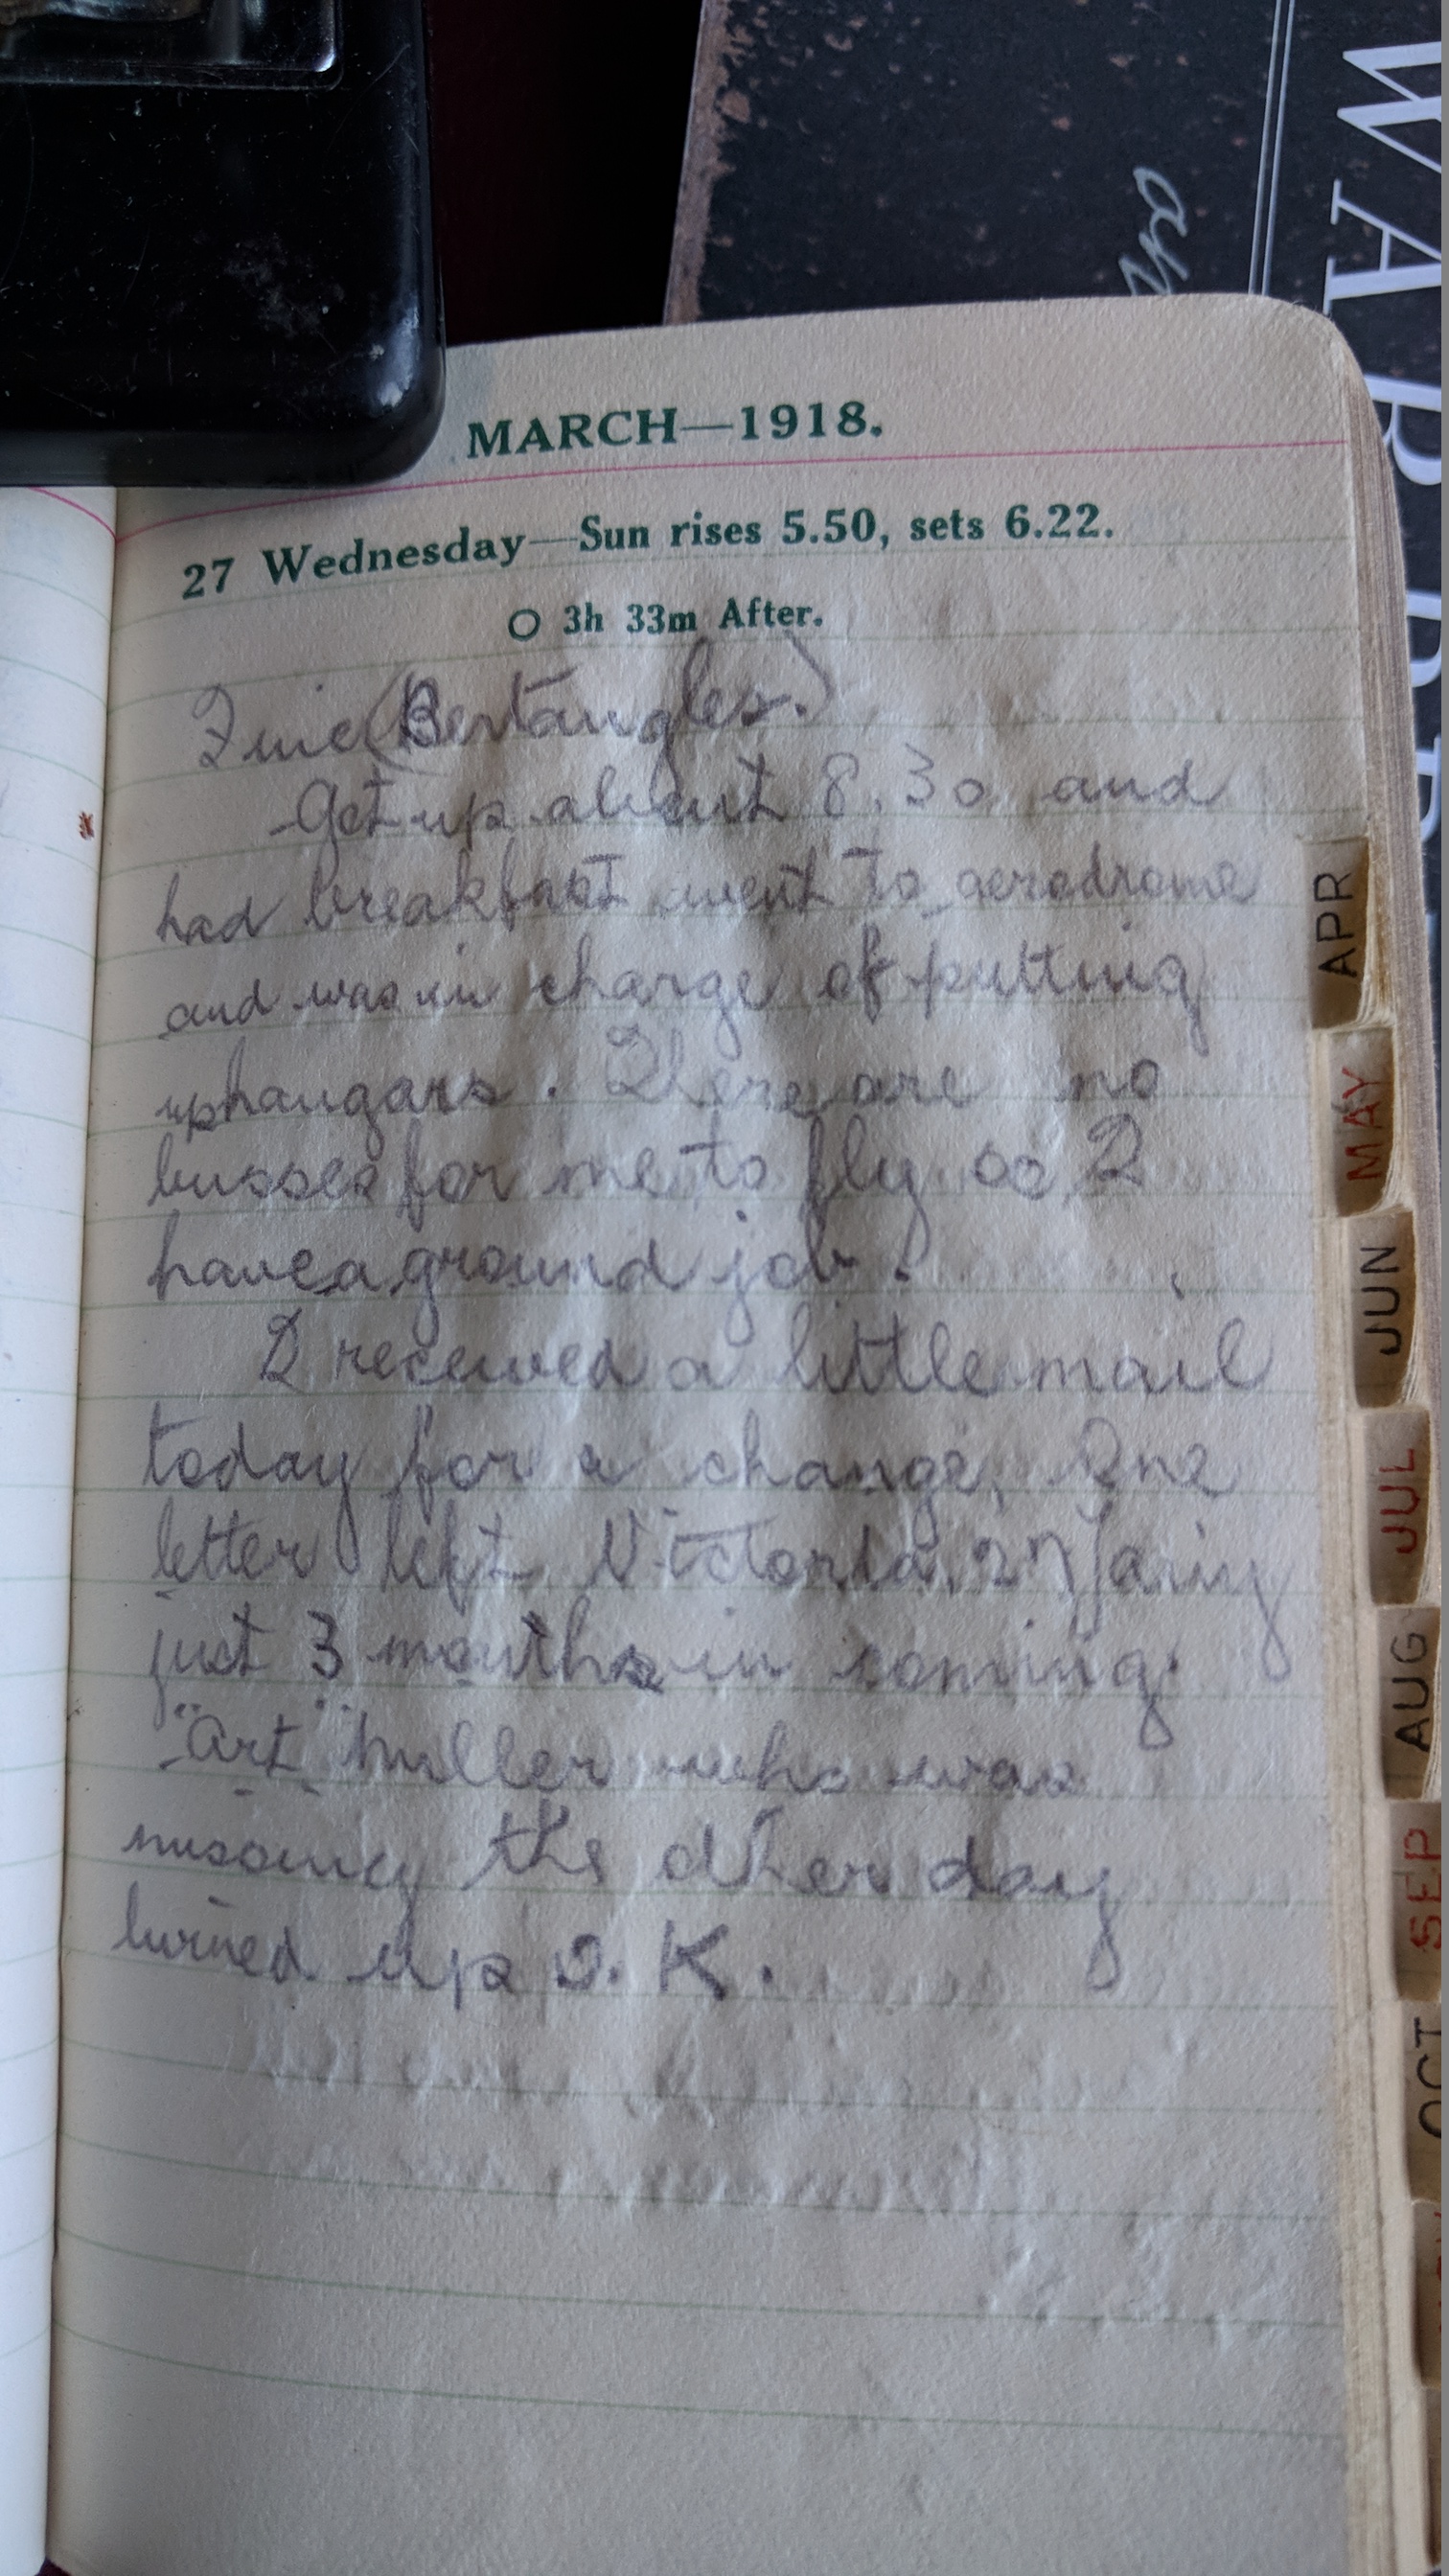 MARCH—1918.
27 Wednesday—Sun rises 5.50, sets 6.22.
O 3h 33m After.
Fine (Bertangles.)
Get up about 8.30 and
had breakfast went to aerodrome
and was in charge of putting
up hangars. There are no
busses for me to fly so I
have a ground job.
I received a little mail
today for a change, One
letter left Victoria 27 Jany
just 3 months in coming.
"Art" Muller who was
missing the other day
turned up O.K.
APR
MAY
JUN
JUL
AUG
SEP
OCT
WAR